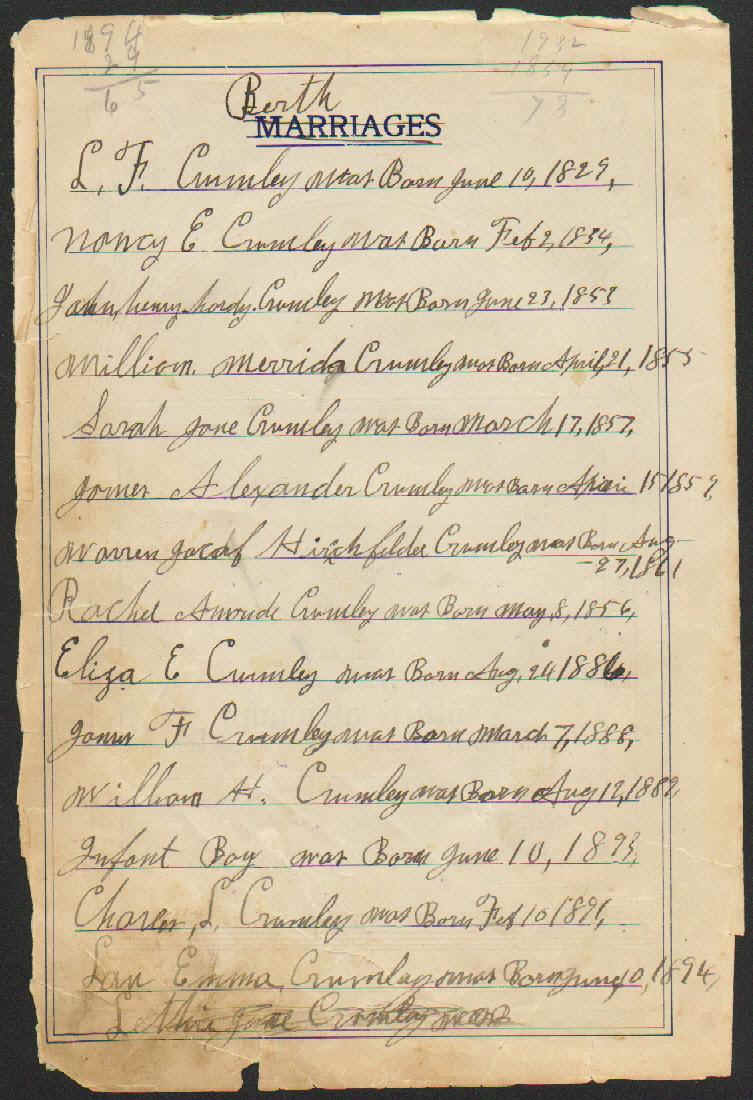 1894
29
65
1932
1859
73
Berth
MARRIAGES
L. F. Crumley was Born June 10, 1829,
Nancy E Crumley was Born Feb 2, 1834,
John henry hardy Crumley was Born June 23, 1853
William merrida Crumley was Born April, 21, 1855
Sarah Jane Crumley was Born March 17, 1857,
James Alexander Crumley was Born 15 1859,
Warren Jacob Hirchfelder Crumley was Born Aug
-27, 1861
Rachel Crumley was Born may, 8, 1856,
Eliza E Crumley was Born Aug, 24 1886,
James F Crumley was Born March 7, 1888,
William H. Crumley was Born Aug 12, 1889,
Infant Boy was Born June 10, 1893,
Charles, L, Crumley was Born Feb 10 1891,
Emma, Crumley was Born June, 10, 1894,
Jane Crumley was